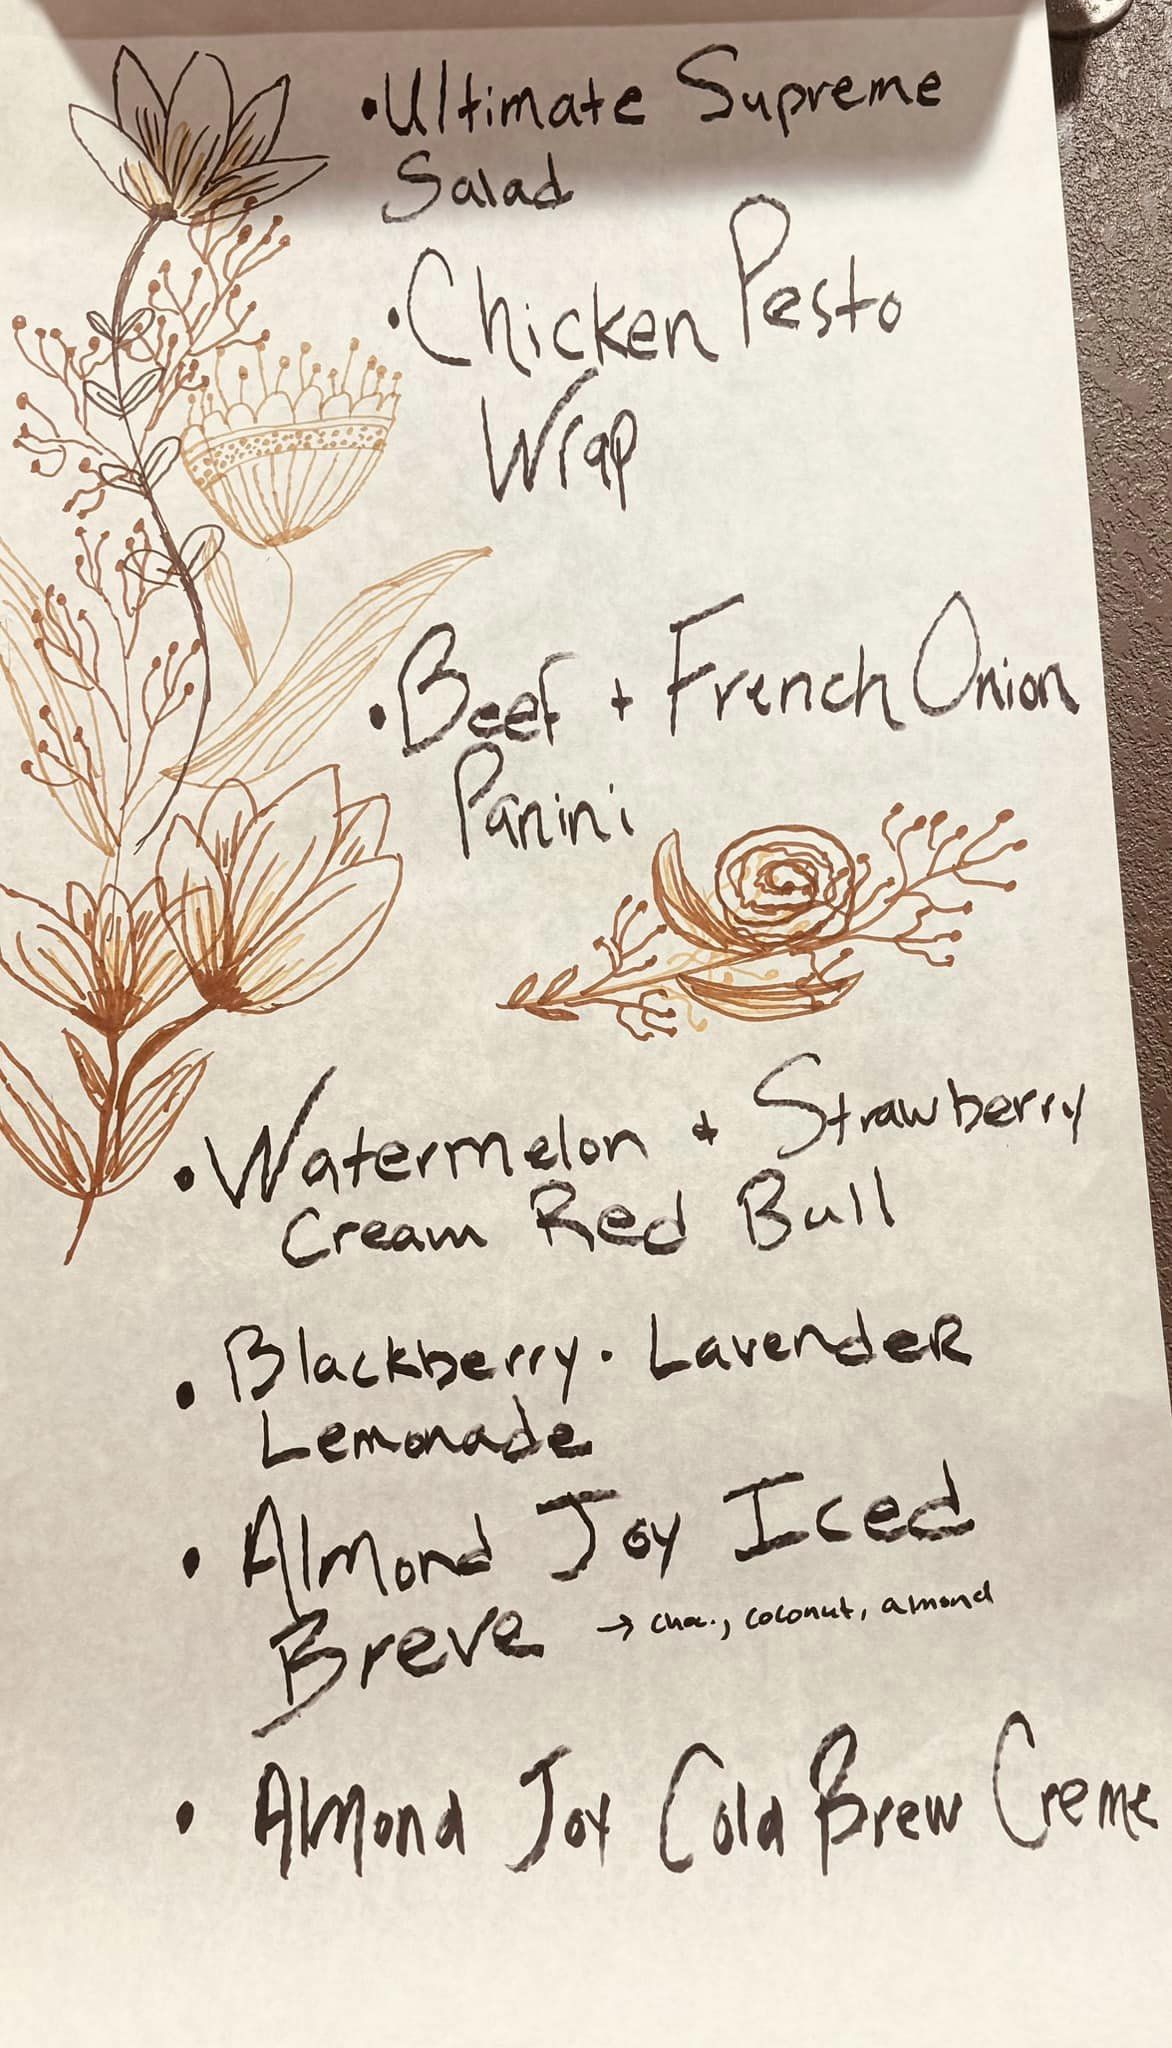 • Ultimate Supreme
Salad
• Chicken Pesto
Wrap
• Beef + French Onion
Panini
• Watermelon + Strawberry
Cream Red Bull
• Blackberry · Lavender
Lemonade
• Almond Joy Iced
Breve → cho., coconut, almond
• Almond Joy Cold Brew Creme